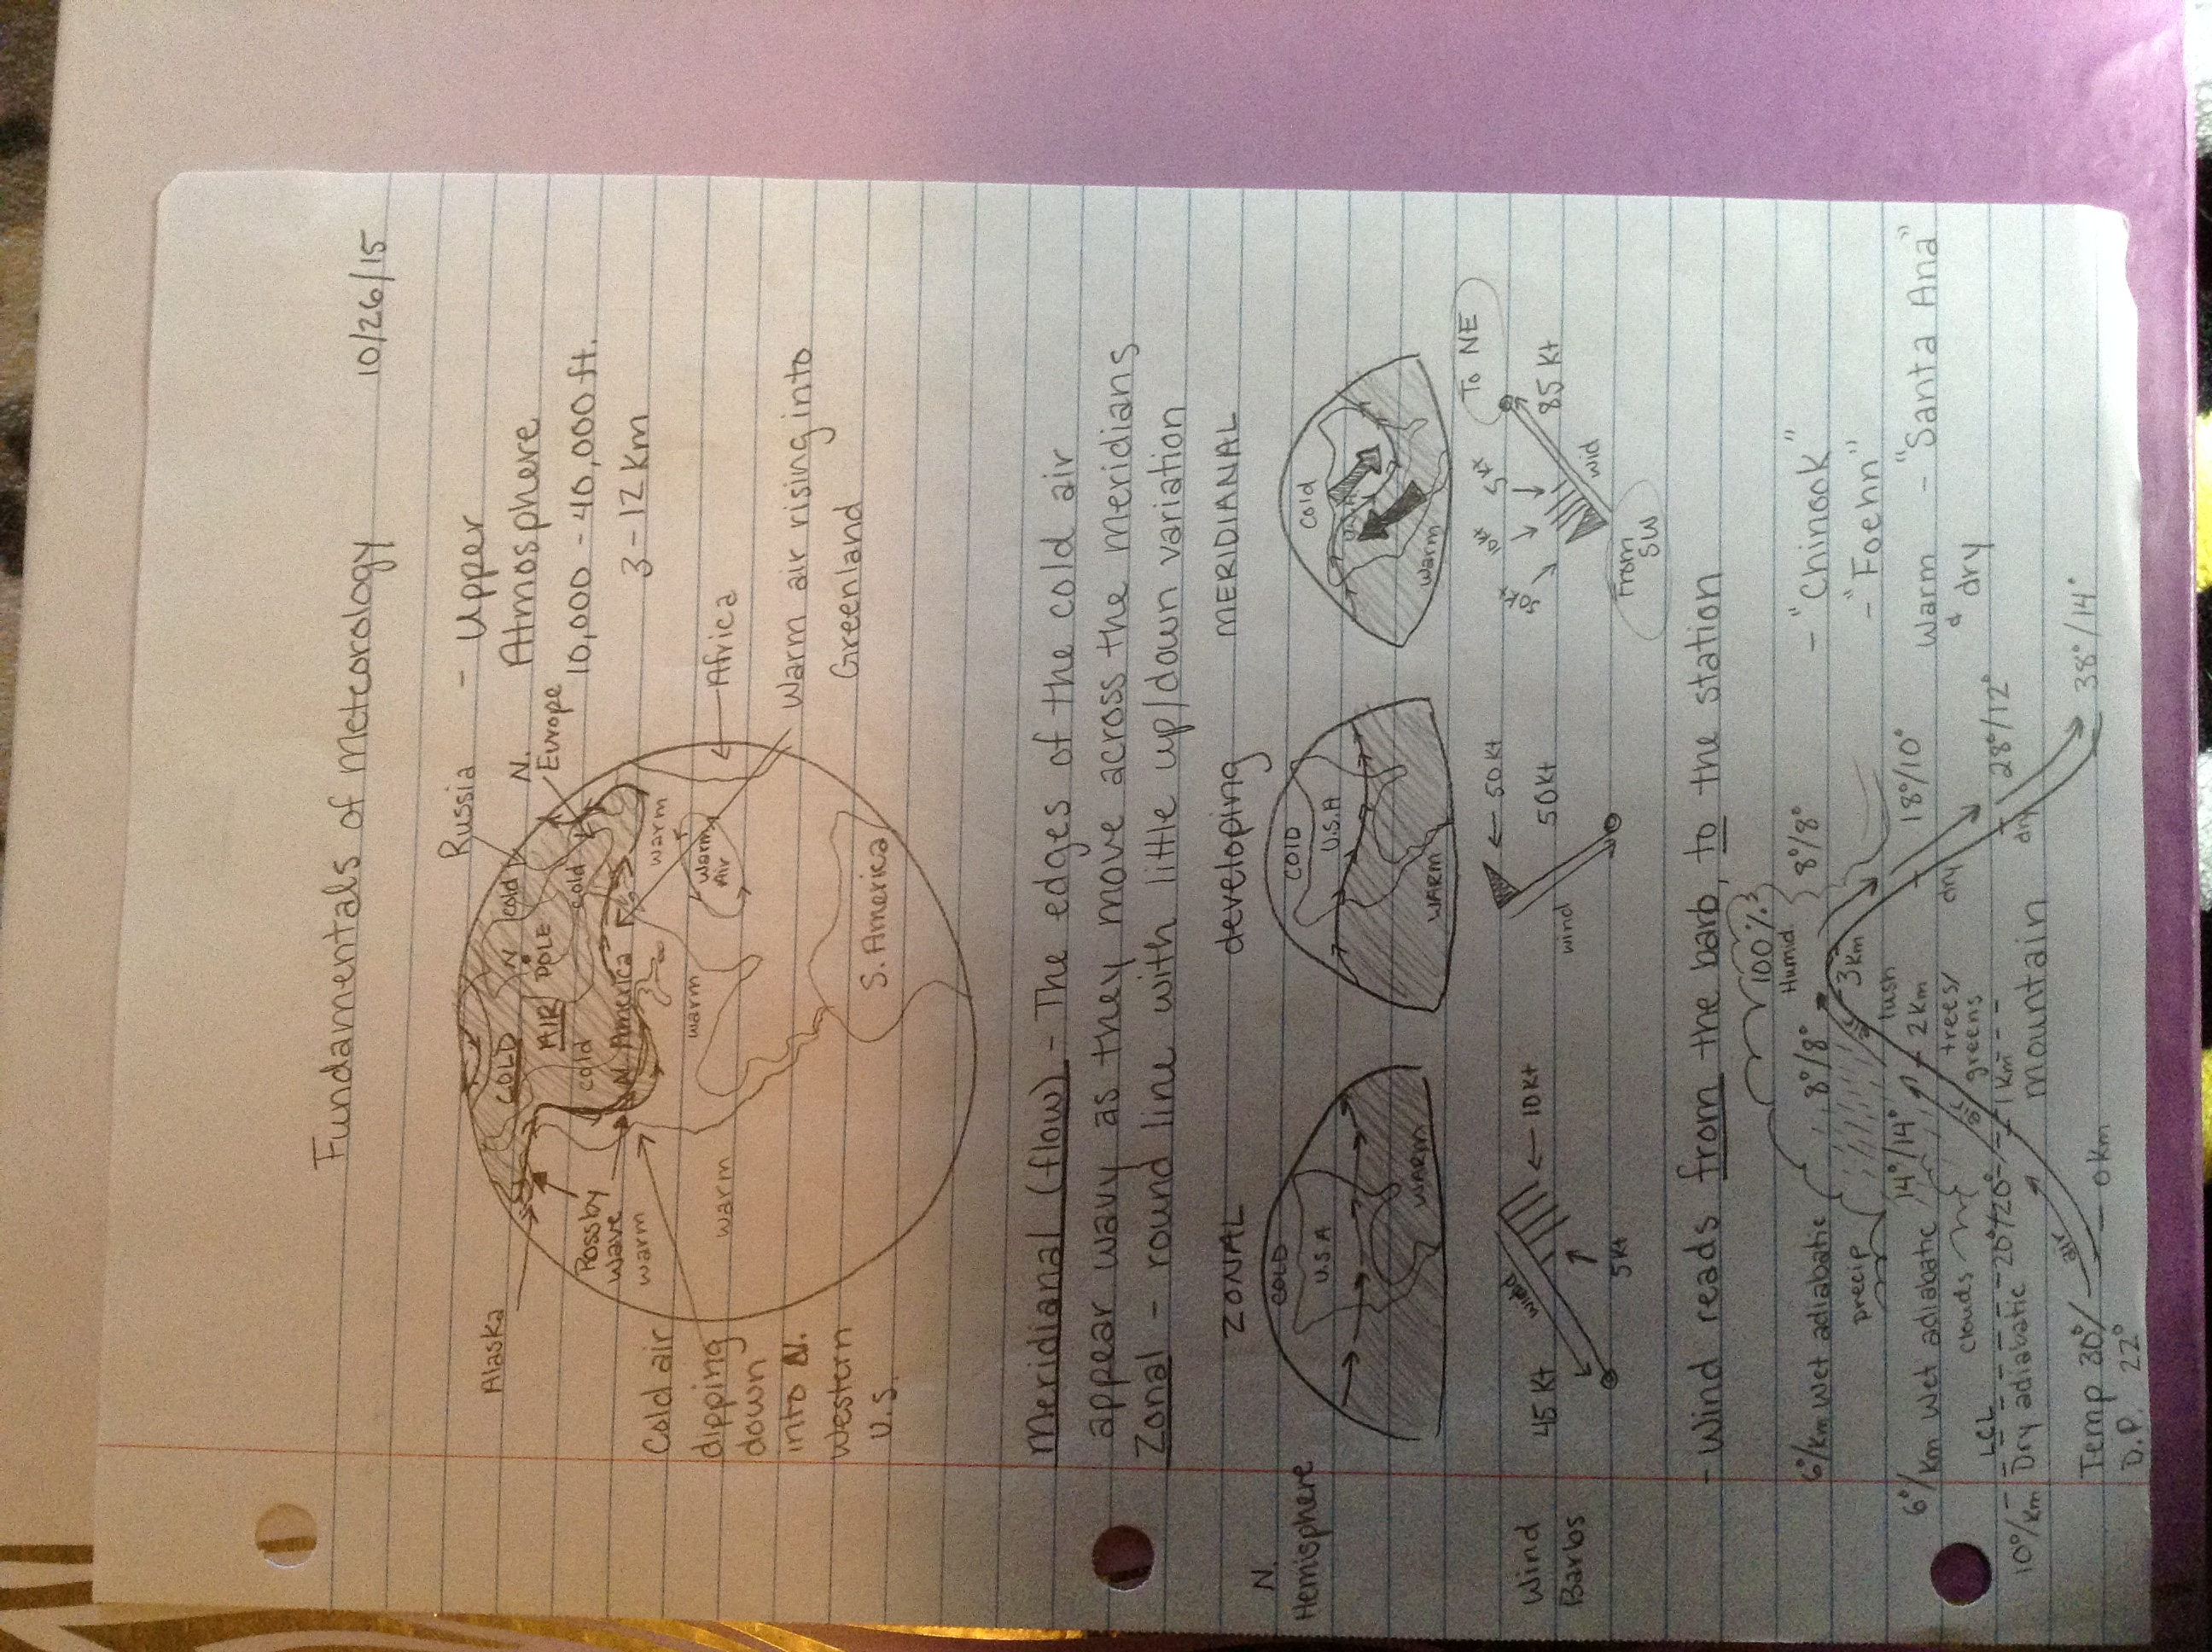 Fundamentals of Meteorology
10/26/15
Russia
- Upper
Atmosphere
10,000 - 40,000 ft.
3 - 12 Km
N.
Europe
Alaska
COLD
AIR
N
POLE
cold
cold
cold
N America
Rossby
Wave
warm
warm
warm
warm
Warm
Air
Africa
Warm air rising into
Greenland
S. America
Cold air
dipping
down
into N.
Western
U.S.
Meridianal (flow) - The edges of the cold air
appear wavy as they move across the meridians
Zonal - round line with little up/down variation
ZONAL
developing
MERIDIANAL
N.
Hemisphere
COLD
U.S.A
WARM
COLD
U.S.A
WARM
Cold
warm
Wind
Barbs
45 Kt
wind
10 Kt
5 Kt
50 Kt
50 Kt
wind
50 Kt
10 Kt
5 Kt
To NE
85 Kt
wid
From
SW
- Wind reads from the barb, to the station
100%
Humid.
6°/Km Wet adiabatic
8°/8°
8°/8°
- "Chinook"
- "Foehn"
precip
3 Km
6°/
Km Wet adiabatic
14°/14°
2 Km
lush
trees/
greens
18°/10°
dry
Warm
& dry
- "Santa Ana"
clouds
LCL
20°/20°
1 Km
28°/12°
dry
10°/Km Dry adiabatic
air
mountain
Temp 30°/
D.P. 22°
0 Km
38°/14°